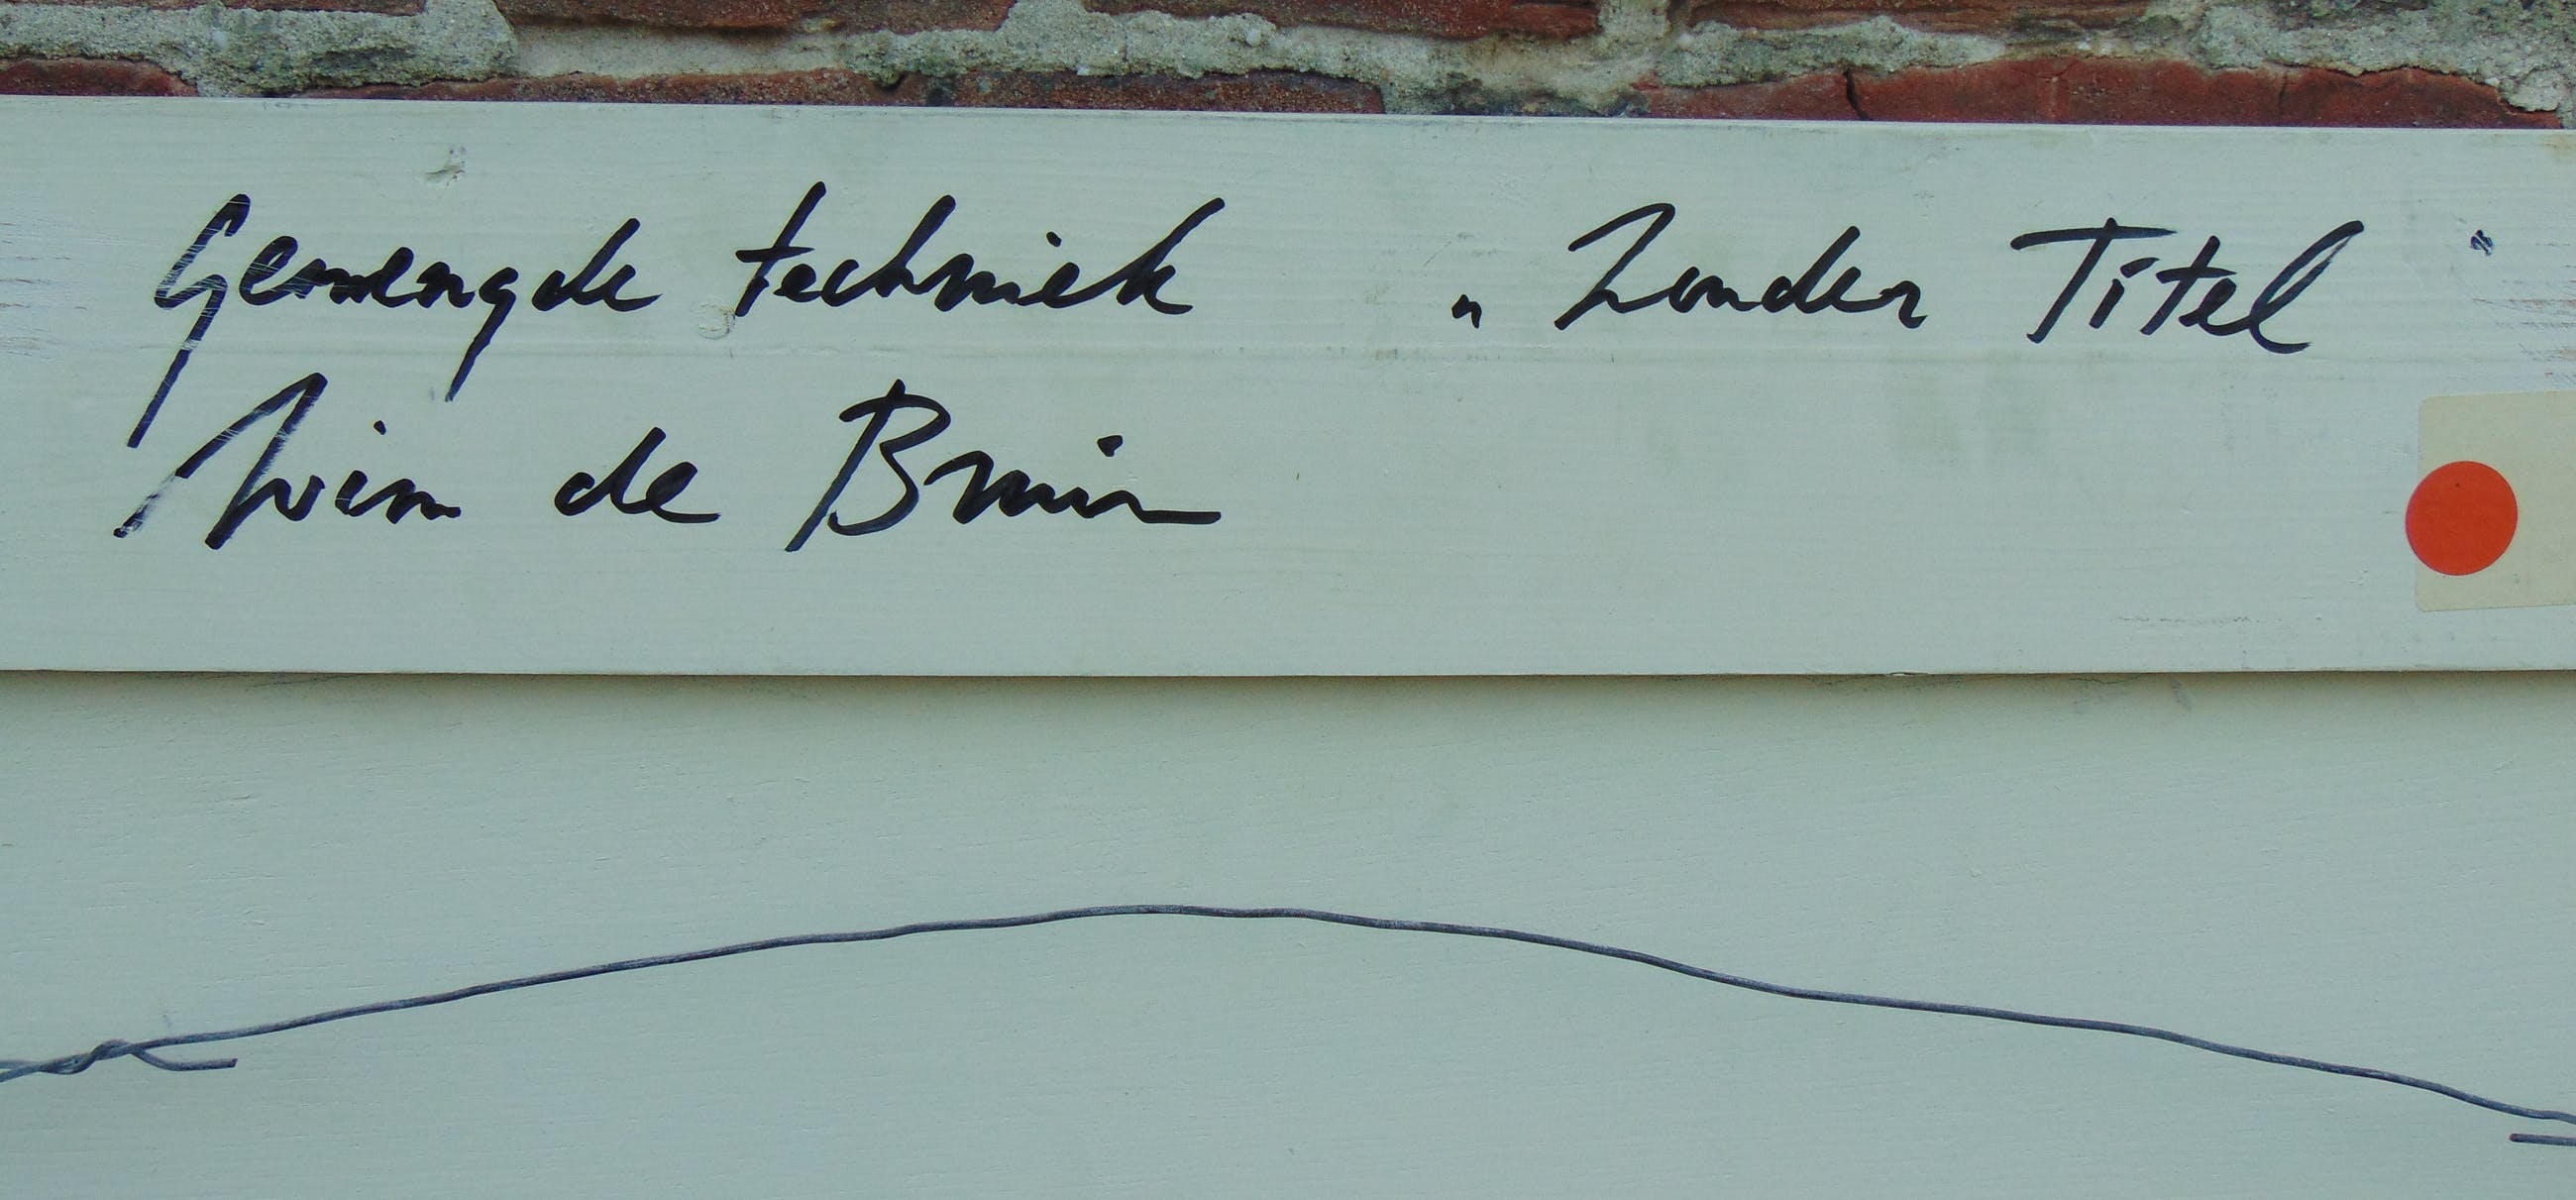 Gemengde techniek „ Zonder Titel "
Wim de Bruin